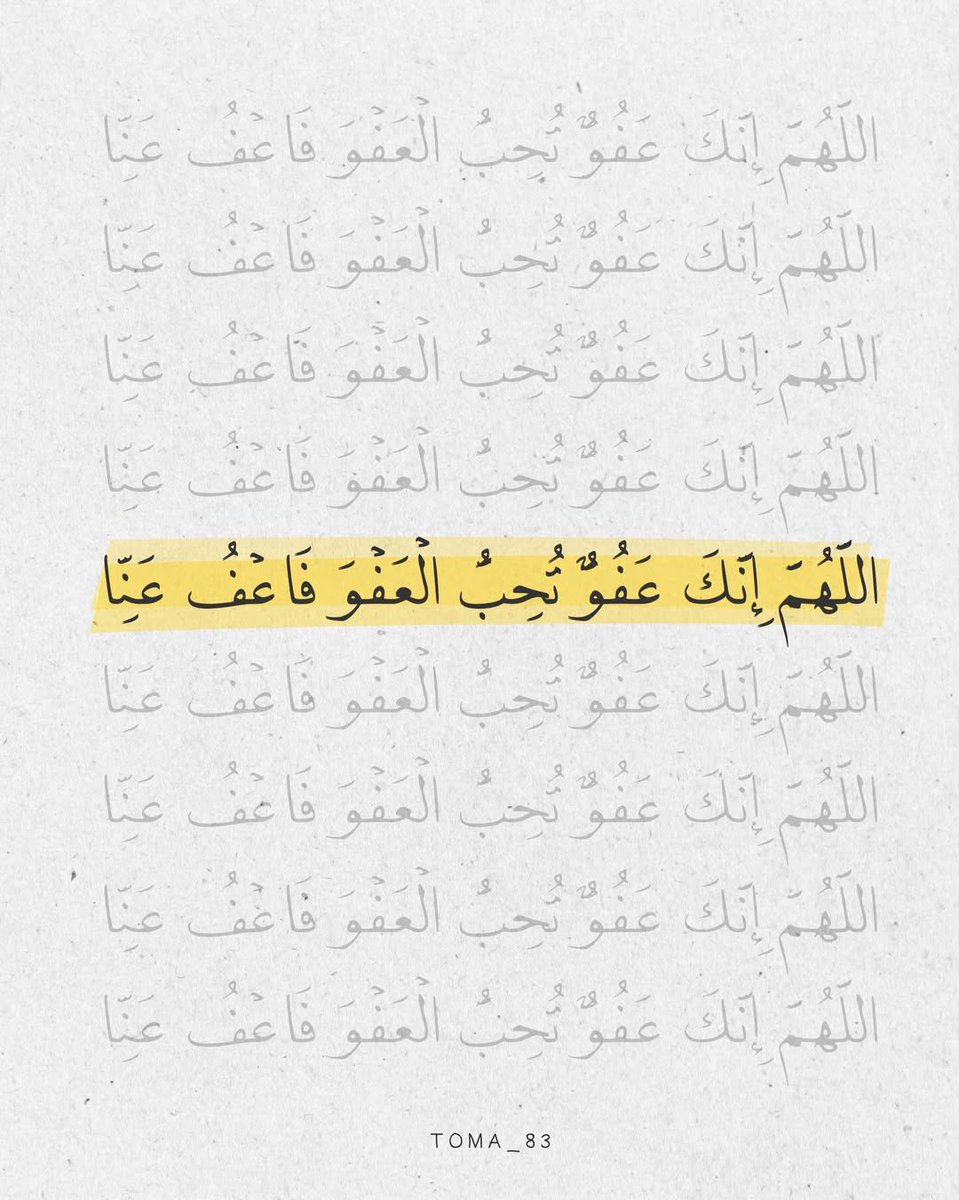 اللَّهُمَّ إِنَّكَ عَفُوٌّ تُحِبُّ الْعَفْوَ فَاعْفُ عَنِّا
اللَّهُمَّ إِنَّكَ عَفُوٌّ تُحِبُّ الْعَفْوَ فَاعْفُ عَنِّا
اللَّهُمَّ إِنَّكَ عَفُوٌّ تُحِبُّ الْعَفْوَ فَاعْفُ عَنِّا
اللَّهُمَّ إِنَّكَ عَفُوٌّ تُحِبُّ الْعَفْوَ فَاعْفُ عَنِّا
اللَّهُمَّ إِنَّكَ عَفُوٌّ تُحِبُّ الْعَفْوَ فَاعْفُ عَنِّا
اللَّهُمَّ إِنَّكَ عَفُوٌّ تُحِبُّ الْعَفْوَ فَاعْفُ عَنِّا
اللَّهُمَّ إِنَّكَ عَفُوٌّ تُحِبُّ الْعَفْوَ فَاعْفُ عَنِّا
اللَّهُمَّ إِنَّكَ عَفُوٌّ تُحِبُّ الْعَفْوَ فَاعْفُ عَنِّا
اللَّهُمَّ إِنَّكَ عَفُوٌّ تُحِبُّ الْعَفْوَ فَاعْفُ عَنِّا
TOMA_83